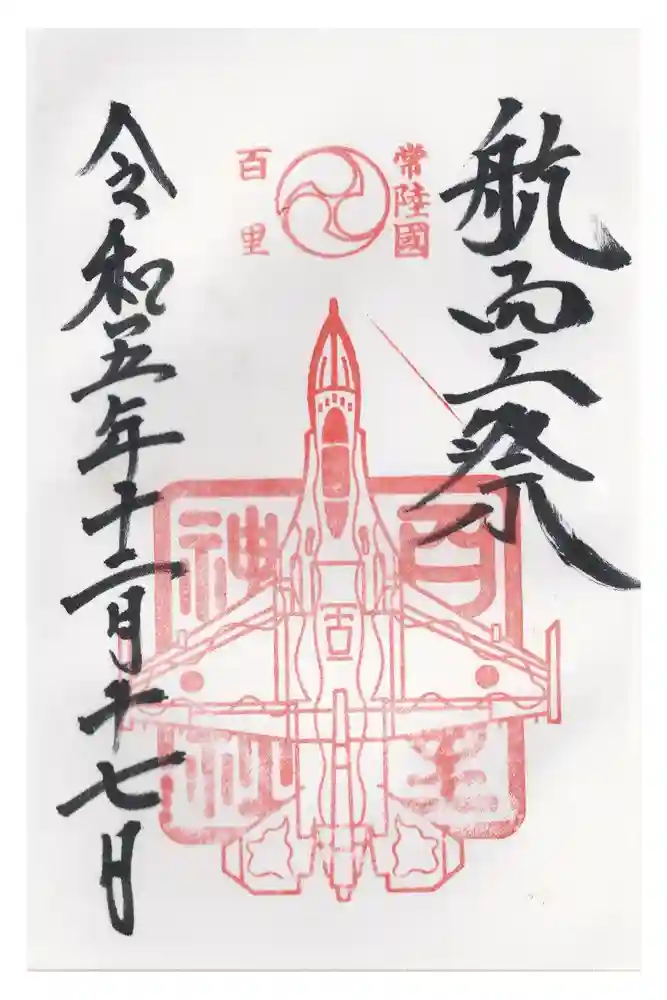 航空祭
常陸國
百里
百里
神社
令和五年十二月十七日